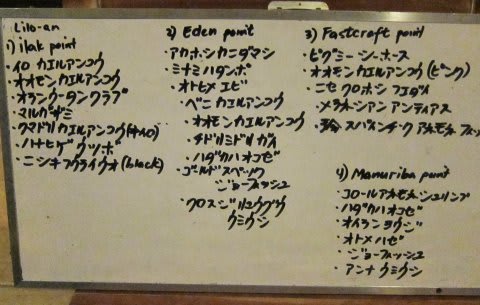 Lilo-an
1) ilak point
・イロ カエルアンコウ
・オオモンカエルアンコウ
・オランウータンクラブ
・マルガザミ
・クマドリカエルアンコウ(キイロ)
・ハナヒゲウツボ
・ニシキフウライウオ(black)
2) Eden point
・アカホシカニダマシ
・ミナミハタンポ
・オトヒメエビ
・ベニカエルアンコウ
・オオモンカエルアンコウ
・チドリミドリガイ
・ハダカハオコゼ
・ゴールドスペック
ジョーフィッシュ
・クロスジリュウグウ
ウミウシ
3) Fastcraft point
・ピグミーシーホース
・オオモンカエルアンコウ(ピンク)
・ニセクロホシフエダイ
・メラネシアンアンティアス
スパインチークアネモネフィッシュ
4) Mamuriba point
・コロールアネモネシュリンプ
・ハダカハオコゼ
・オイランヨウジ
・オトメハゼ
・ジョーフィッシュ
・アンナウミウシ